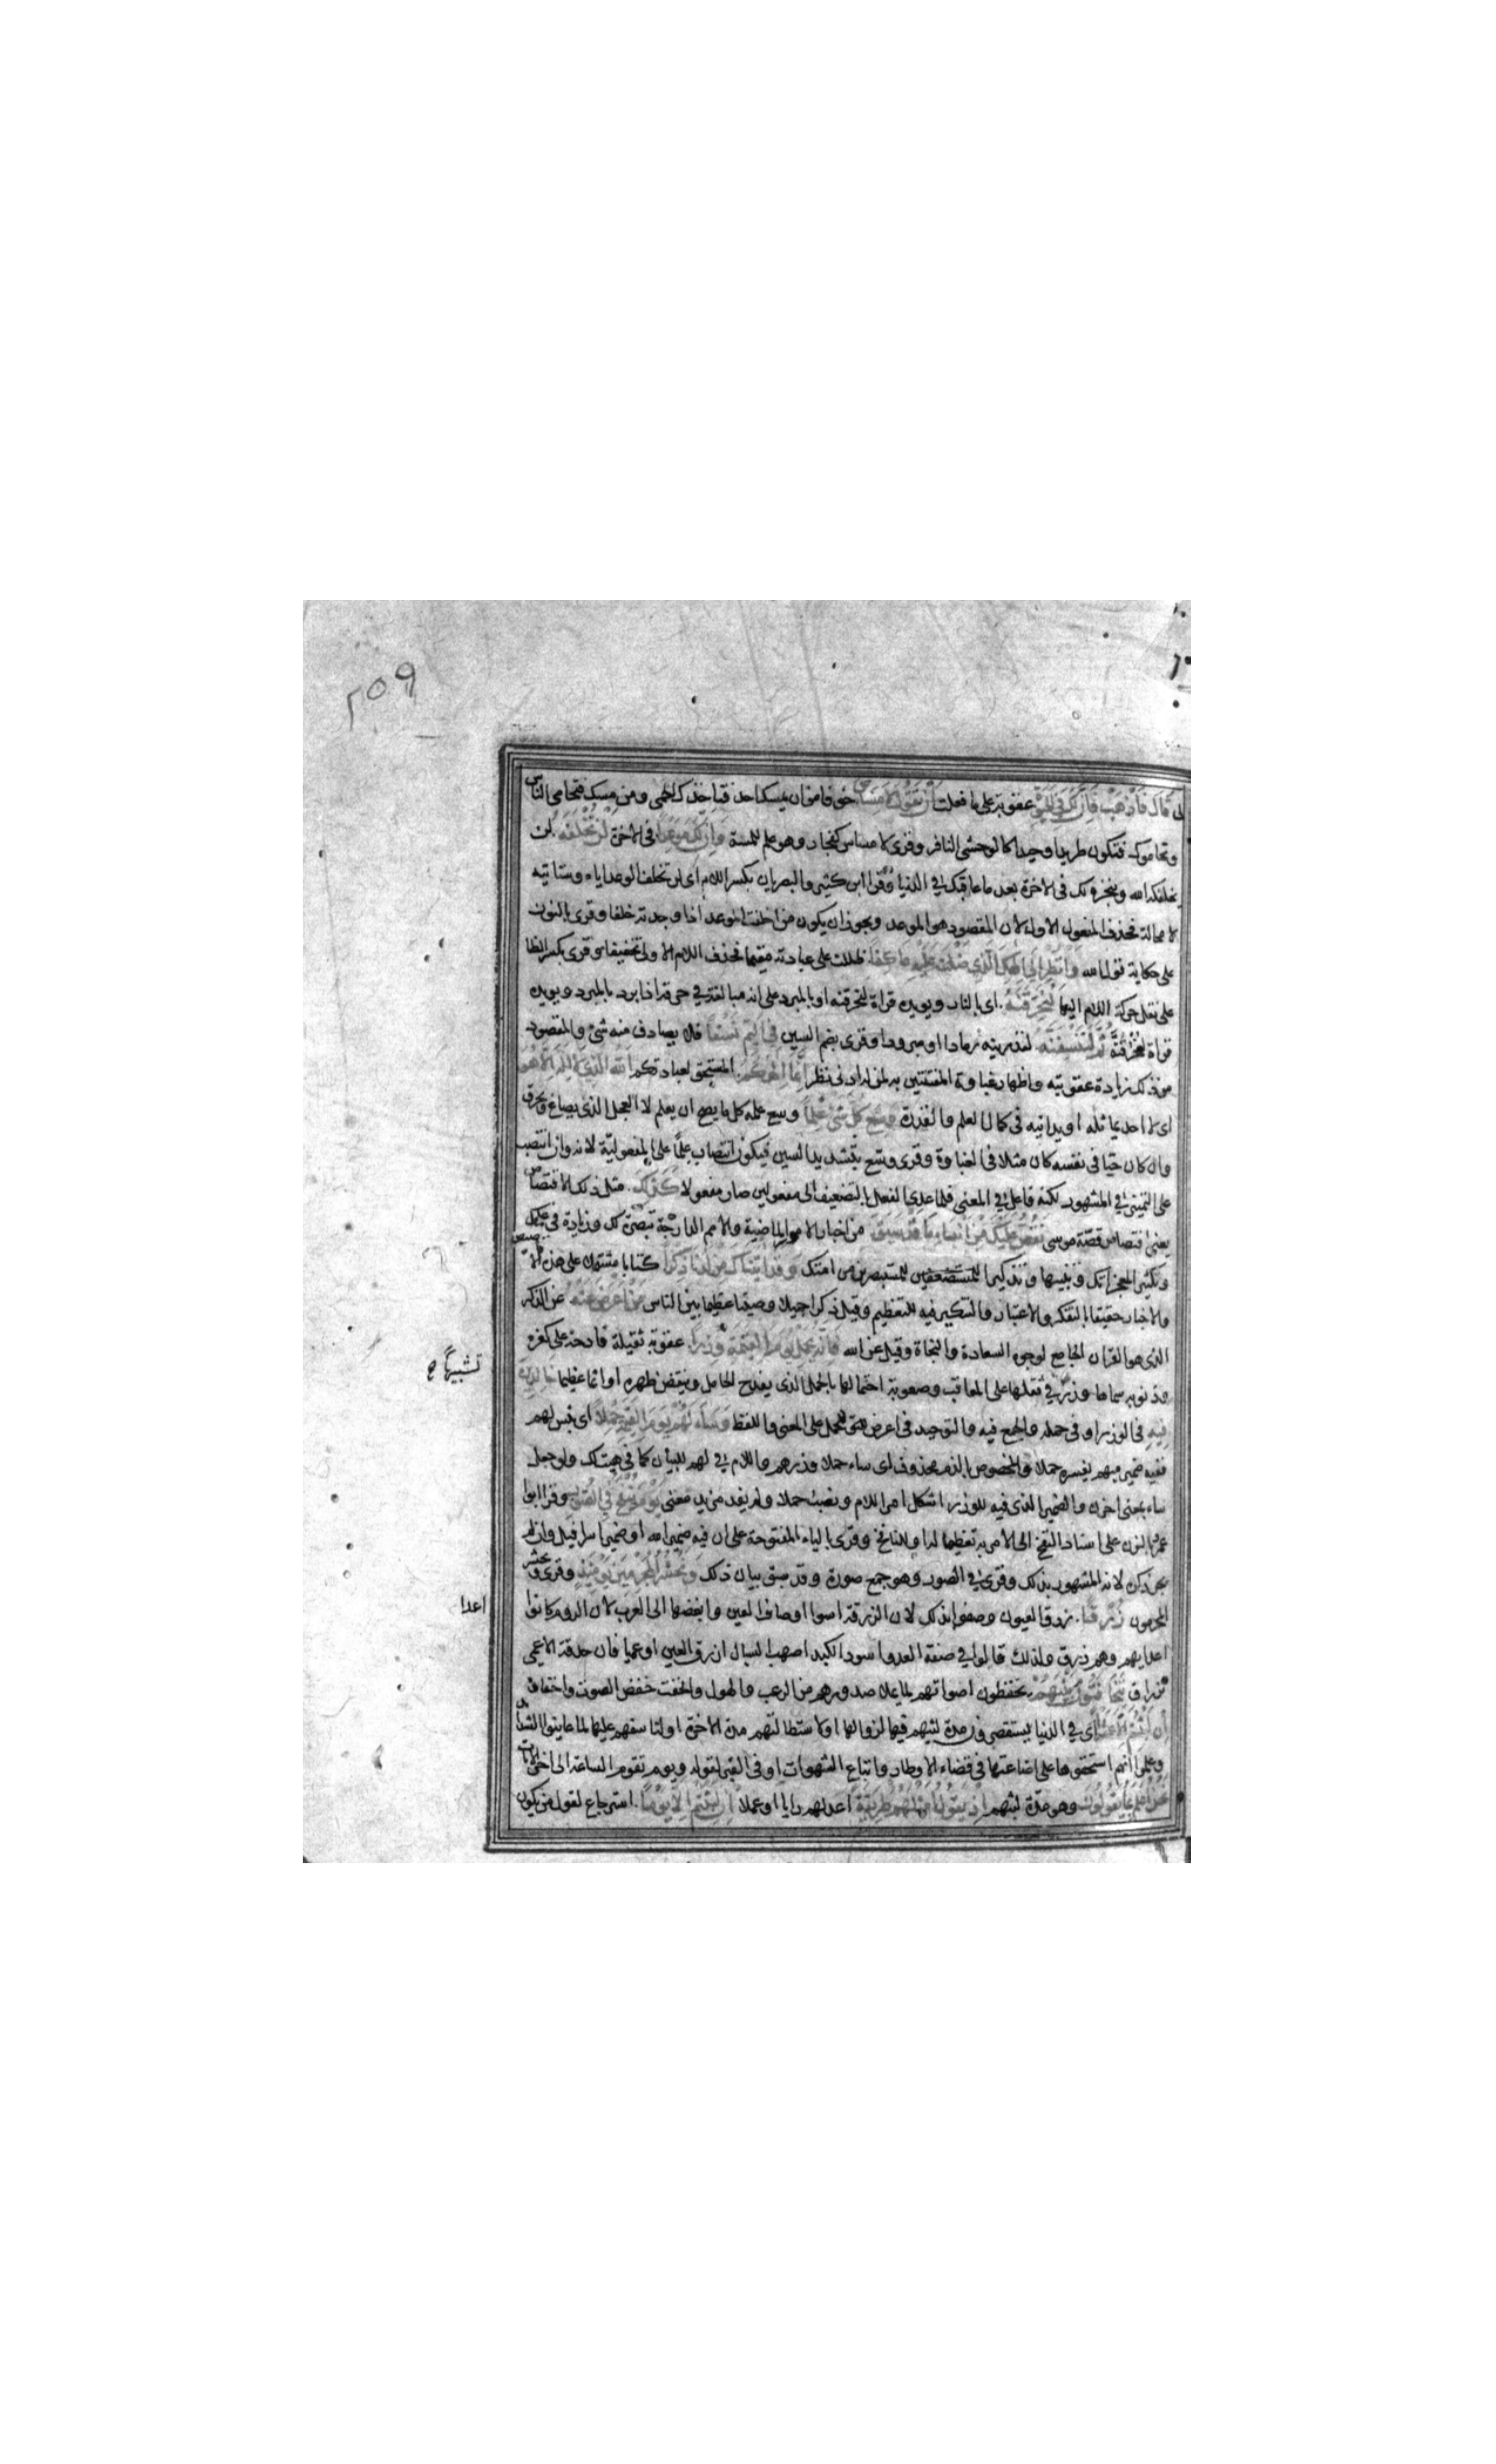 ٢٥٩
لى قال فاذهب فان لك فى الحيوة عقوبة على ما فعلت ان تقول لا مساس خوفا من ان يمسك احد فتاخذك الحمى ومن مسك فتحامى الناس
وتحاموك فتكون طريدا وحيدا كالوحشى النافر وقرئ لا مساس كفجار وهو علم للمسة وان لك موعدا فى الاخرة لن تخلفه لن
يخلفكه الله وينجزه لك فى الاخرة بعد ما عاقبك فى الدنيا وقرا ابن كثير والبصريان بكسر اللام اى لن تخلف الوعد اياه وستاتيه
لا محالة فحذف المفعول الاول لان المقصود هو الموعد ويجوز ان يكون من اخلفت الموعد اذا وجدته خلفا وقرئ بالنون
على حكاية قول الله وانظر الى الهك الذى ظلت عليه عاكفا ظللت على عبادته مقيما فحذف اللام الاولى تخفيفا وقرئ بكسر الظا
على نقل حركة اللام اليها لنحرقنه اى بالنار ويويده قراة لنحرقنه او بالمبرد على انه مبالغة فى حرق اذا برد بالمبرد ويويده
قراة لنحرقنه ثم لننسفنه لنذرينه رمادا او مبرودا وقرئ بضم السين فى اليم نسفا فلا يصادف منه شئ والمقصود
من ذلك زيادة عقوبته واظهار غباوة المفتتنين به لمن له ادنى نظر انما الهكم المستحق لعبادتكم الله الذى لا اله الا هو
اى لا احد يماثله او يدانيه فى كمال العلم والقدرة وسع كل شئ علما وسع علمه كل ما يصح ان يعلم لا العجل الذى يصاغ ويحرق
وان كان حيا فى نفسه كان مثلا فى الغباوة وقرئ وسع بتشديد السين فيكون انتصاب علما على المفعولية لانه وان انتصب
على التمييز فى المشهور لكنه فاعل فى المعنى فلما عدى الفعل بالتضعيف الى مفعولين صار مفعولا كذلك مثل ذلك الاقتصاص
يعنى اقتصاص قصة موسى نقص عليك من انباء ما قد سبق من اخبار الامور الماضية والامم الدارجة تبصرة لك وزيادة فى علمك
وتكثيرا لمعجزاتك وتنبيها وتذكيرا للمستبصرين من امتك وقد اتيناك من لدنا ذكرا كتابا مشتملا على هذه الاقاصيص
والاخبار حقيقا بالتفكر والاعتبار والتنكير فيه للتعظيم وقيل ذكرا جميلا وصيتا عظيما بين الناس من اعرض عنه عن الذكر
الذى هو القران الجامع لوجوه السعادة والنجاة وقيل عن الله فانه يحمل يوم القيمة وزرا عقوبة ثقيلة فادحة على كفره
وذنوبه سماها وزرا فى ثقلها على المعاقب وصعوبة احتمالها بالحمل الذى يفدح الحامل وينقض ظهره او اثما عظيما خالدين
فيه فى الوزر او فى حمله والجمع فيه والتوحيد فى اعرض للحمل على المعنى واللفظ وساء لهم يوم القيمة حملا اى بئس لهم
ففيه ضمير مبهم يفسره حملا والمخصوص بالذم محذوف اى ساء حملا وزرهم واللام فى لهم للبيان كما فى هيت لك ولو جعل
ساء بمعنى احزن والضمير الذى فيه للوزر اشكل امر اللام ونصب حملا ولم يفد مزيد معنى يوم ينفخ فى الصور وقرا ابو
عمرو بالنون على اسناد النفخ الى الامر به تعظيما له او للنافخ وقرئ بالياء المفتوحة على ان فيه ضمير الله او ضمير اسرافيل وان لم
يجر ذكره لانه المشهور بذلك وقرئ فى الصور وهو جمع صورة وقد سبق بيان ذلك ونحشر المجرمين يومئذ وقرئ ويحشر
المجرمون زرقا زرق العيون وصفوا بذلك لان الزرقة اسوا اوصاف العين وابغضها الى العرب لان الروم كانوا
اعدايهم وهم زرق ولذلك قالوا فى صفة العدو اسود الكبد اصهب السبال ازرق العين او عميا فان حدقة الاعمى
تزراق يتخافتون بينهم يخفضون اصواتهم لما يملا صدورهم من الرعب والهول والخفت خفض الصوت واخفاؤه
ان لبثتم الا عشرا اى فى الدنيا يستقصرون مدة لبثهم فيها لزوالها او لاستطالتهم مدة الاخرة او لتاسفهم عليها لما عاينوا الشدائد
وعلموا انهم استحقوها على اضاعتها فى قضاء الاوطار واتباع الشهوات او فى القبر لقوله ويوم تقوم الساعة الى اخر الايات
نحن اعلم بما يقولون وهو مدة لبثهم اذ يقول امثلهم طريقة اعدلهم رايا او عملا ان لبثتم الا يوما استرجاع لقول من يكون
تشبيها صح
اعدا